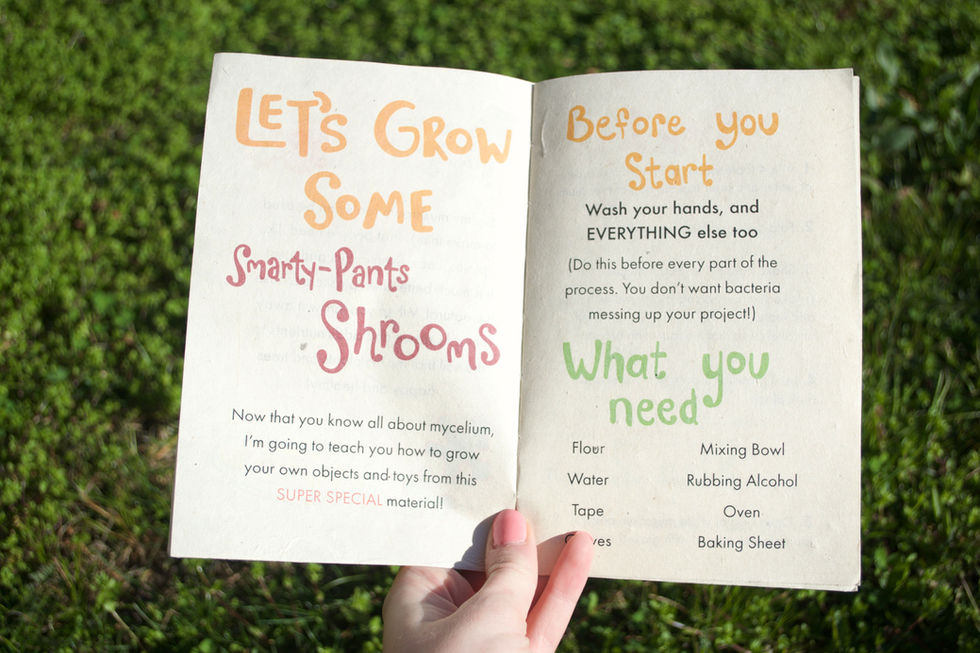 LET'S GROW
SOME
Smarty-Pants
Shrooms
Now that you know all about mycelium,
I'm going to teach you how to grow
your own objects and toys from this
SUPER SPECIAL material!
Before you
Start
Wash your hands, and
EVERYTHING else too
(Do this before every part of the
process. You don't want bacteria
messing up your project!)
What you
need
Flour Mixing Bowl
Water Rubbing Alcohol
Tape Oven
Baking Sheet